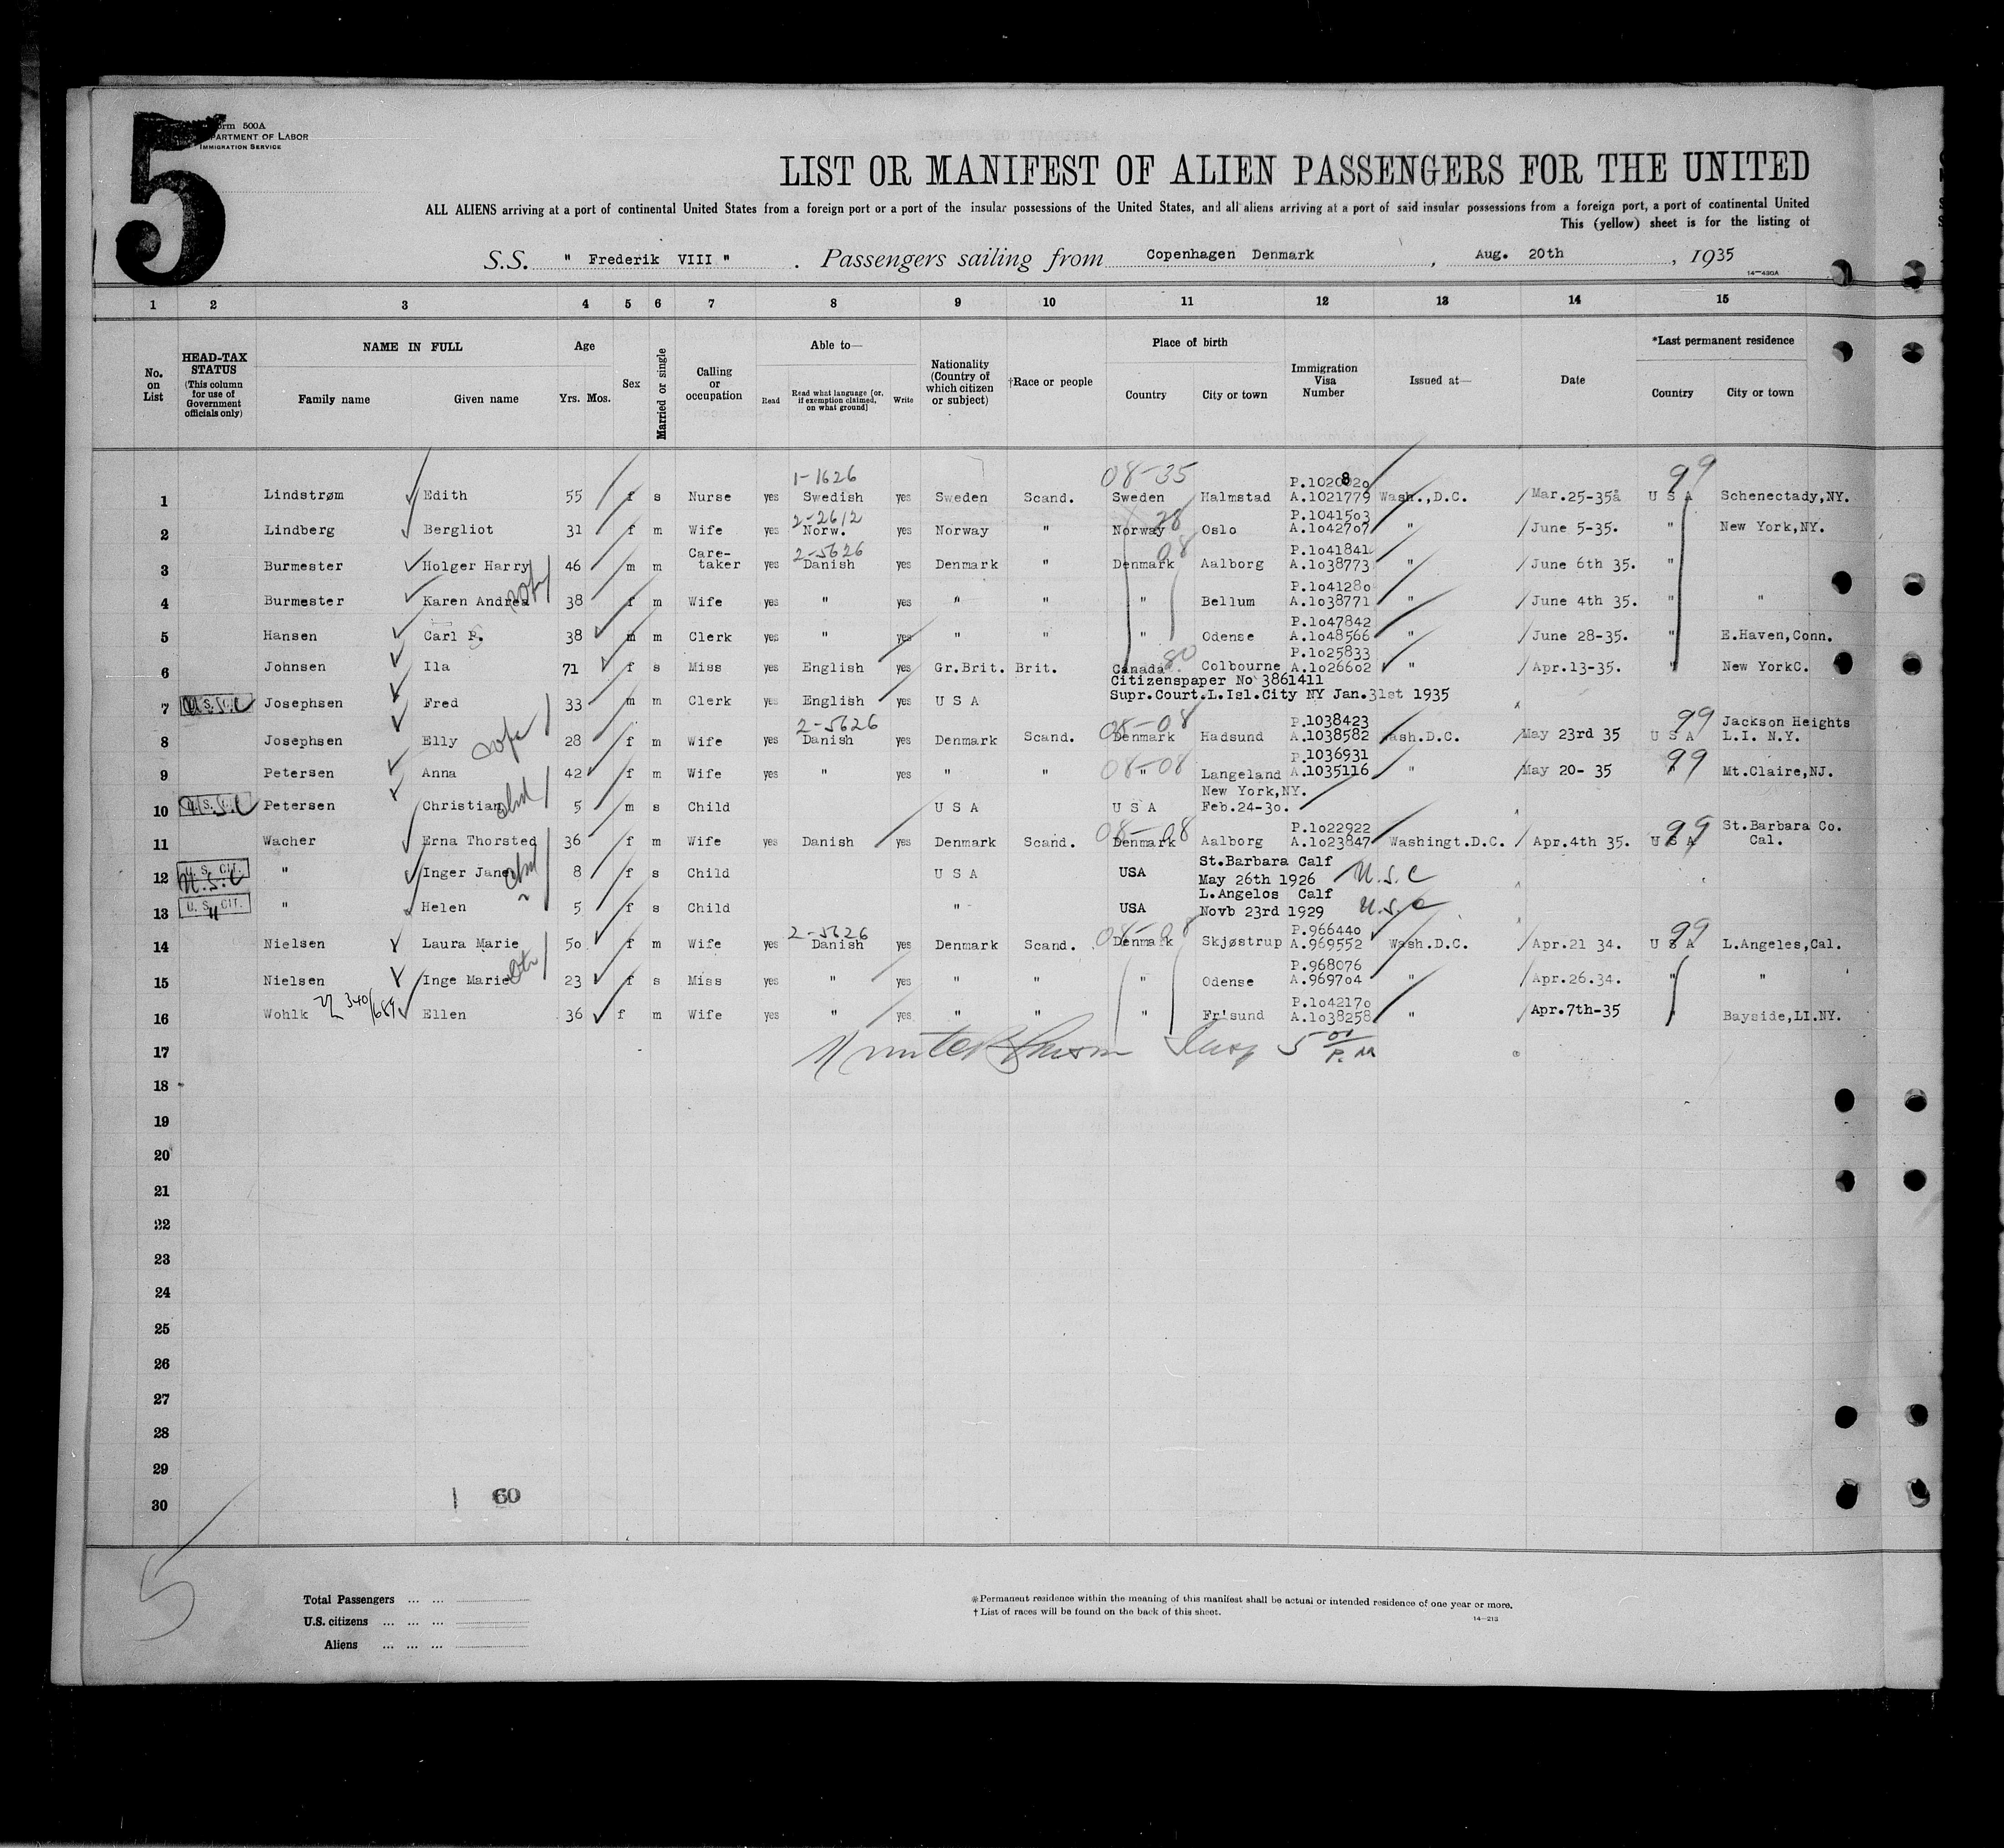 5
Form 500A
DEPARTMENT OF LABOR
IMMIGRATION SERVICE
LIST OR MANIFEST OF ALIEN PASSENGERS FOR THE UNITED
ALL ALIENS arriving at a port of continental United States from a foreign port or a port of the insular possessions of the United States, and all aliens arriving at a port of said insular possessions from a foreign port, a port of continental United
This (yellow) sheet is for the listing of
S.S. " Frederik VIII " . Passengers sailing from Copenhagen Denmark , Aug. 20th , 1935
14—430A
1 2 3 4 5 6 7 8 9 10 11 12 13 14 15
No. on List
HEAD-TAX STATUS (This column for use of Government officials only)
NAME IN FULL
Family name Given name
Age
Yrs. Mos.
Sex
Married or single
Calling or occupation
Able to—
Read Read what language (or, if exemption claimed, on what ground) Write
Nationality (Country of which citizen or subject)
†Race or people
Place of birth
Country City or town
Immigration Visa Number
Issued at—
Date
*Last permanent residence
Country City or town
1-1626 08-35 P.1020820 99
1 Lindstrøm Edith 55 f s Nurse yes Swedish yes Sweden Scand. Sweden Halmstad A.1021779 Wash.,D.C. Mar.25-35 U S A Schenectady,NY.
2-2612 28 P.1041503
2 Lindberg Bergliot 31 f m Wife yes Norw. yes Norway " Norway Oslo A.1042707 " June 5-35. " New York,NY.
Care- 2-5626 08 P.1041841
3 Burmester Holger Harry 46 m m taker yes Danish yes Denmark " Denmark Aalborg A.1038773 " June 6th 35. "
P.1041280
4 Burmester Karen Andrea 38 f m Wife yes " yes " " " Bellum A.1038771 " June 4th 35. " "
P.1047842
5 Hansen Carl 38 m m Clerk yes " yes " " " Odense A.1048566 " June 28-35. " E.Haven,Conn.
80 P.1025833
6 Johnsen Ila 71 f s Miss yes English yes Gr.Brit. Brit. Canada Colbourne A.1026602 " Apr.13-35. " New YorkC.
Citizenspaper No 3861411
7 U.S.C Josephsen Fred 33 m m Clerk yes English yes U S A Supr.Court.L.Isl.City NY Jan.31st 1935
2-5626 08-08 P.1038423 99 Jackson Heights
8 Josephsen Elly 28 f m Wife yes Danish yes Denmark Scand. Denmark Hadsund A.1038582 Wash.D.C. May 23rd 35 U S A L.I. N.Y.
08-08 P.1036931 99
9 Petersen Anna 42 f m Wife yes " yes " " " Langeland A.1035116 " May 20- 35 " Mt.Claire,NJ.
New York,NY.
10 U.S.C Petersen Christian 5 m s Child U S A U S A Feb.24-30.
08-08 P.1022922 99 St.Barbara Co.
11 Wacher Erna Thorsted 36 f m Wife yes Danish yes Denmark Scand. Denmark Aalborg A.1023847 Washingt.D.C. Apr.4th 35. U S A Cal.
U. S. CIT. St.Barbara Calf
12 U.S.C " Inger Jane 8 f s Child U S A USA May 26th 1926 U.S.C
L.Angelos Calf
13 U. S. CIT. " " Helen 5 f s Child " USA Novb 23rd 1929 U.S.C
2-5626 08-08 P.966440 99
14 Nielsen Laura Marie 50 f m Wife yes Danish yes Denmark Scand. Denmark Skjøstrup A.969552 Wash.D.C. Apr.21 34. U S A L.Angeles,Cal.
P.968076
15 Nielsen Inge Marie 23 f s Miss yes " yes " " " Odense A.969704 " Apr.26.34. " "
P.1042170
16 Wohlk Ellen 36 f m Wife yes " yes " " " Fr'sund A.1038258 " Apr.7th-35 " Bayside,LI.NY.
17 Insp 5 P.M
18
19
20
21
22
23
24
25
26
27
28
29
30
60
5
Total Passengers
U.S. citizens
Aliens
*Permanent residence within the meaning of this manifest shall be actual or intended residence of one year or more.
† List of races will be found on the back of this sheet.
14—213